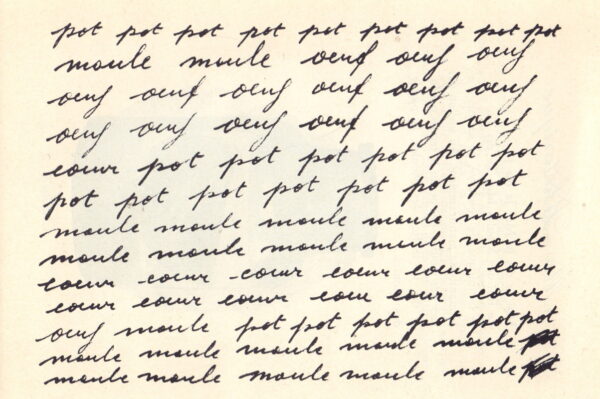 pot pot pot pot pot pot pot pot pot
moule moule oeuf oeuf oeuf
oeuf oeuf oeuf oeuf oeuf oeuf
oeuf oeuf oeuf oeuf oeuf oeuf
coeur pot pot pot pot pot pot
pot pot pot pot pot pot pot
moule moule moule moule moule
moule moule moule moule moule
coeur coeur coeur coeur coeur coeur
coeur coeur coeur coeur coeur coeur
oeuf moule pot pot pot pot pot pot
moule moule moule moule moule
moule moule moule moule moule